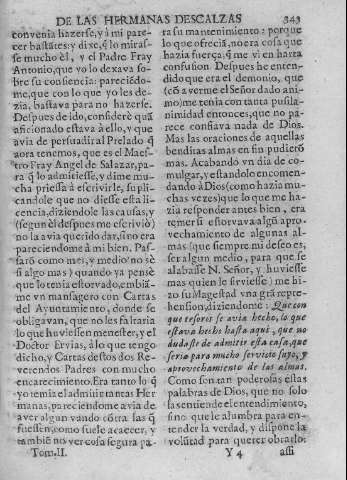 DE LAS HERMANAS DESCALZAS 343
convenia hazerse, y à mi pare-
cer bastãtes: y dixe, q̃ lo miras-
se mucho èl, y el Padre Fray
Antonio, que yo lo dexava so-
bre su consiencia: pareciédo-
me, que con lo que yo les de-
zia, bastava para no hazerse.
Despues de ido, considerè quã
aficionado estava à ello, y que
avia de persuadir al Prelado q̃
aora tenemos, que es el Maes-
tro Fray Angel de Salazar, pa-
ra q̃ lo admitiesse, y dime mu-
cha priessa à escrivirle, supli-
candole que no diesse esta li-
cencia, diziendole las causas, y
(segun èl despues me escriviò)
no la avia querido dar, sino era
pareciendome à mi bien. Pas-
sarõ como mes, y medio no sè
si algo mas) quando ya pensè
que lo tenia estorvado, embiã-
me vn mansagero con Cartas
del Ayuntamiento, donde se
obligavan, que no les faltaria
lo que huviessen menester, y el
Doctor Ervias, à lo que tengo
dicho, y Cartas destos dos Re-
verendos Padres con mucho
encarecimiento. Era tanto lo q̃
yo temia el admitir tantas Her
manas, pareciendome avia de
aver algun vando cõtra las q̃
fuessen, como suele acaecer, y
tambiẽ no ver cosa segura pa-
Tom. II.
ra su mantenimiento: porque
lo que ofreciã, no era cosa que
hazia fuerça, q̃ me vi en harta
confusion. Despues he enten-
dido que era el demonio, que
(cõ averme el Señor dado ani-
mo) me tenia con tanta pusila-
nimidad entonces, que no pa-
rece confiava nada de Dios.
Mas las oraciones de aquellas
benditas almas en fin pudierõ
mas. Acabando vn dia de co-
mulgar, y estandolo encomen-
dando à Dios (como hazia mu-
chas vezes) que lo que me ha-
zia responder antes bien, era
temer si estorvava algũ apro-
vechamiento de algunas al-
mas (que siempre mi deseo es,
ser algun medio, para que se
alabasse N. Señor, y huviesse
mas quien le sirviesse) me hi-
zo su Magestad vna grã repre-
hension, diziendome: Que con
que tesoros se avia hecho, lo que
estava hecho hasta aqui, que no
dudasse de admitir esta casa, que
seria para mucho servicio suyo, y
aprovechamiento de las almas.
Como son tan poderosas estas
palabras de Dios, que no solo
las entiende el entendimiento,
sino que le alumbra para en-
tender la verdad, y dispone la
volũtad para querer obrarlo:
Y 4 assi